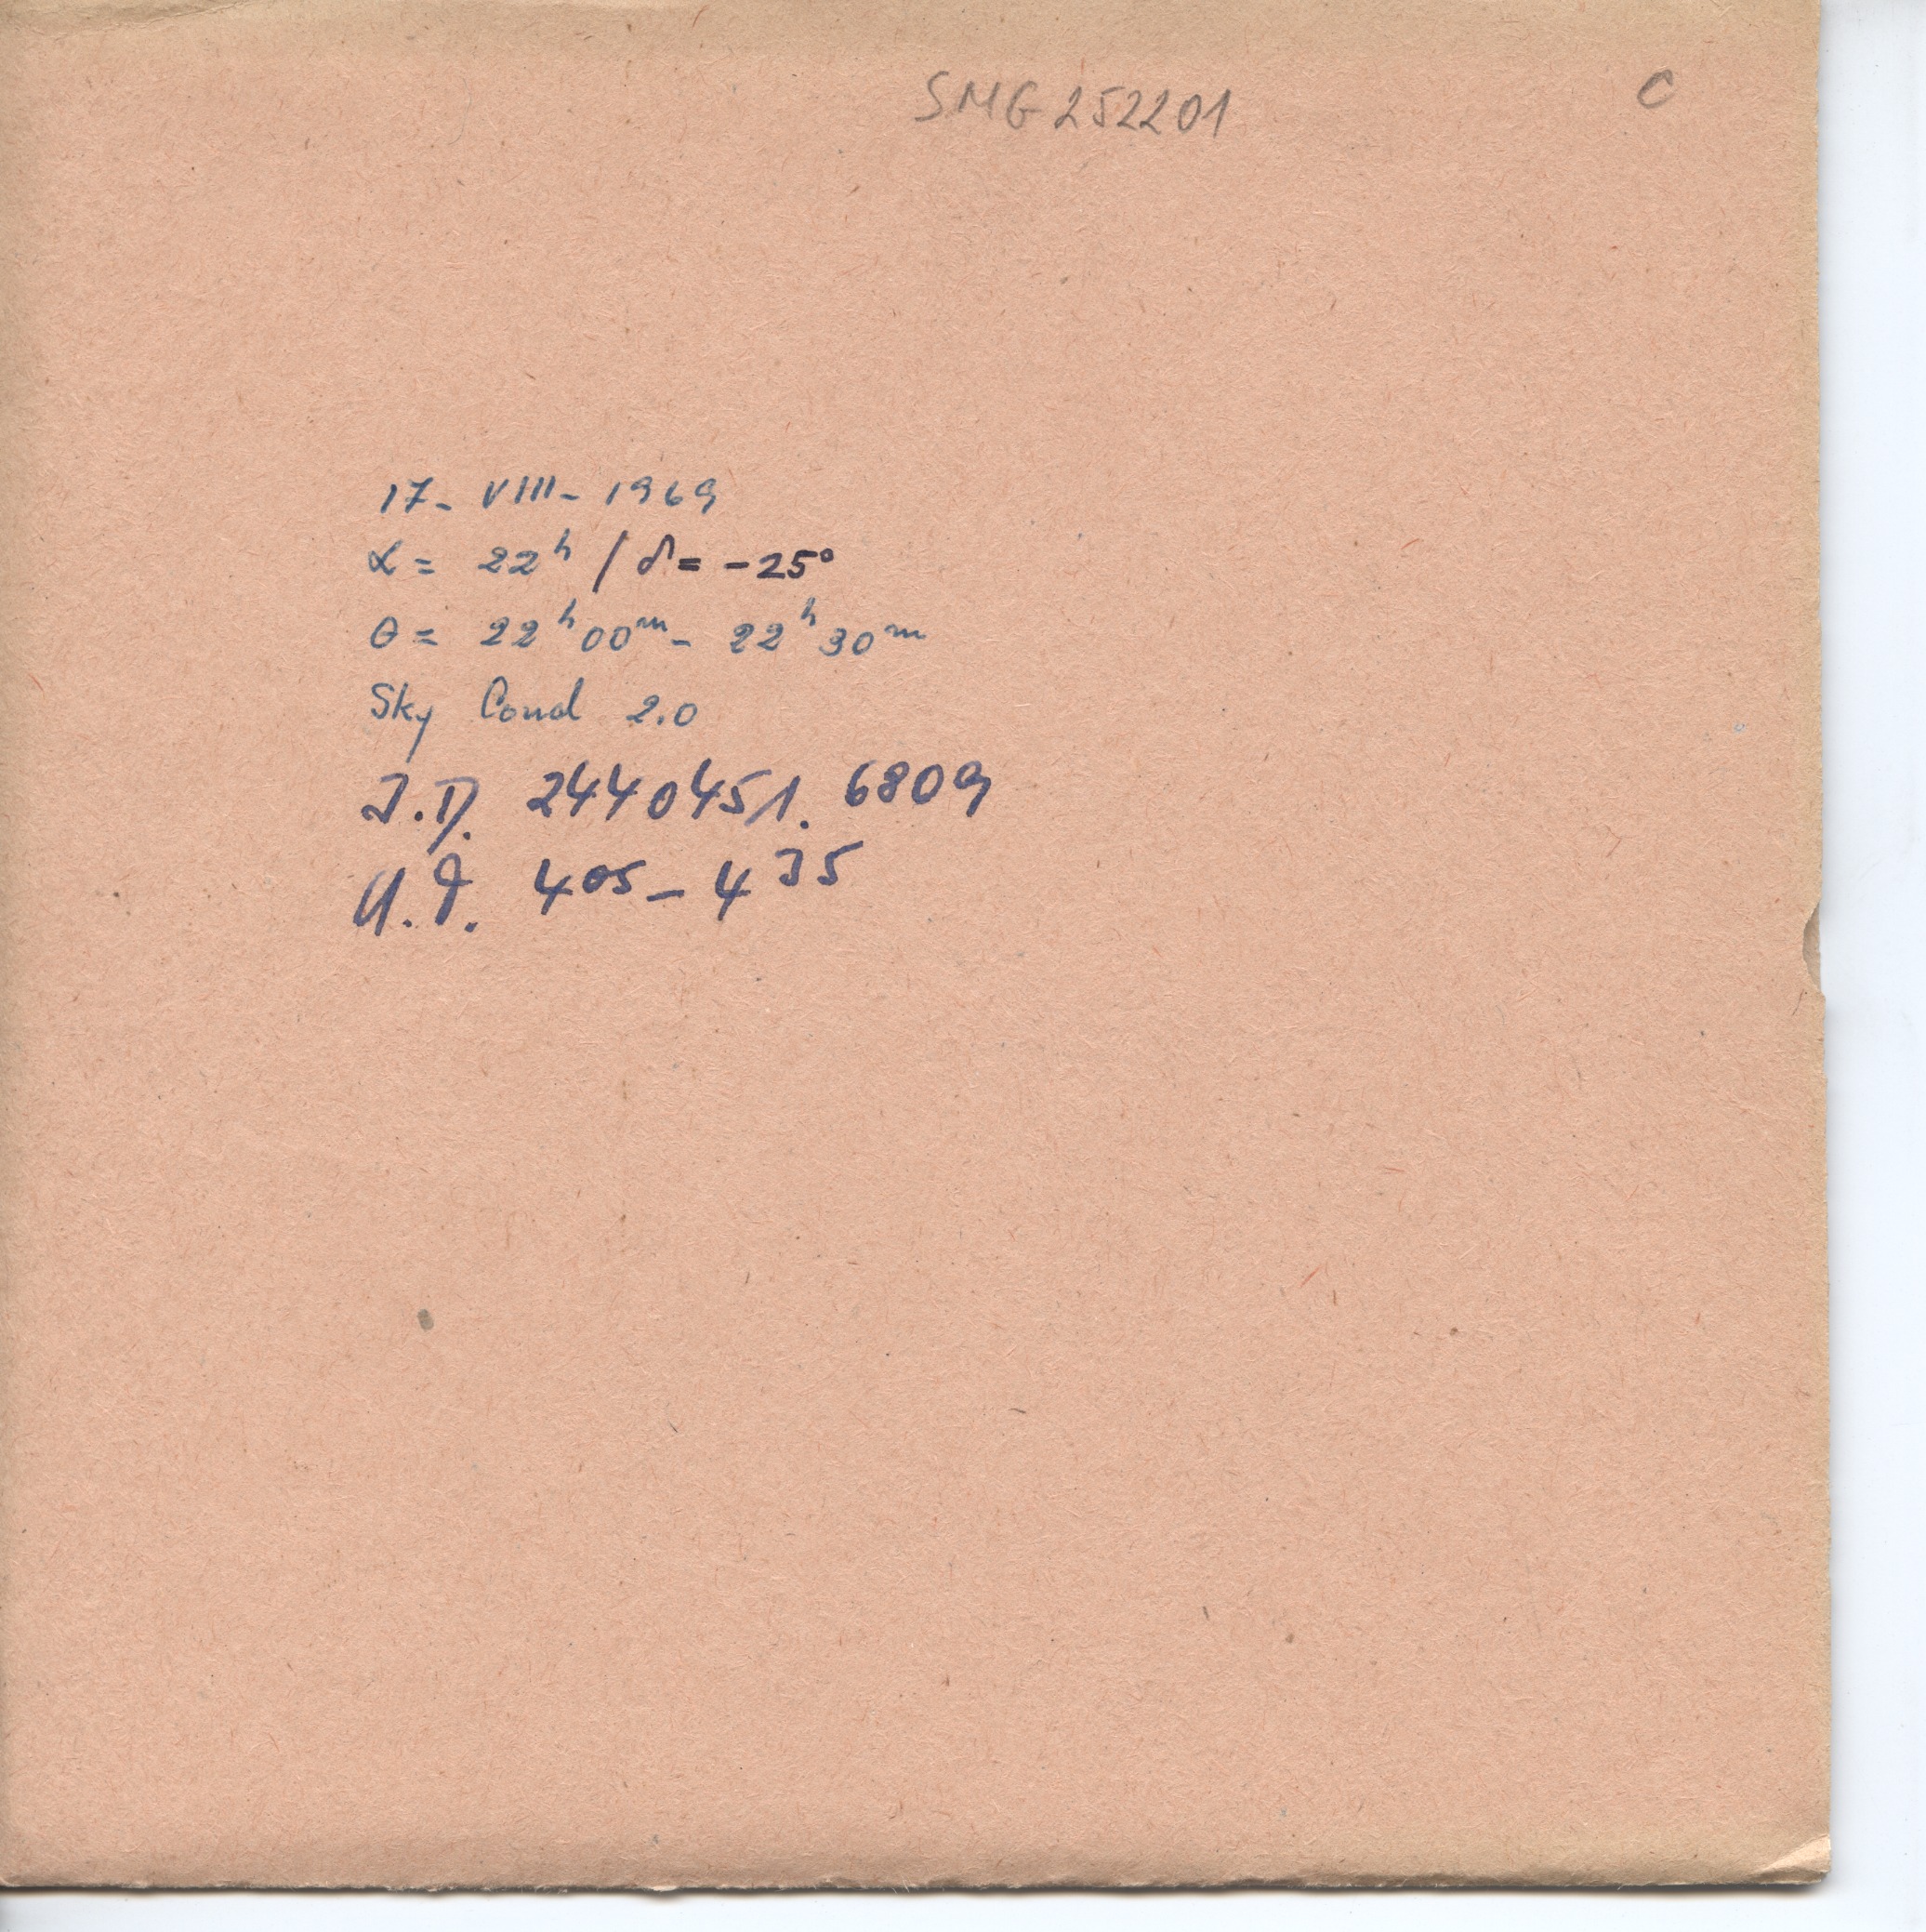 SMG 252201 C
17- VIII- 1969
α = 22ʰ / δ = -25°
θ = 22ʰ00ᵐ- 22ʰ30ᵐ
Sky Cond 2.0
J.D. 2440451.6809
U.T. 405-435